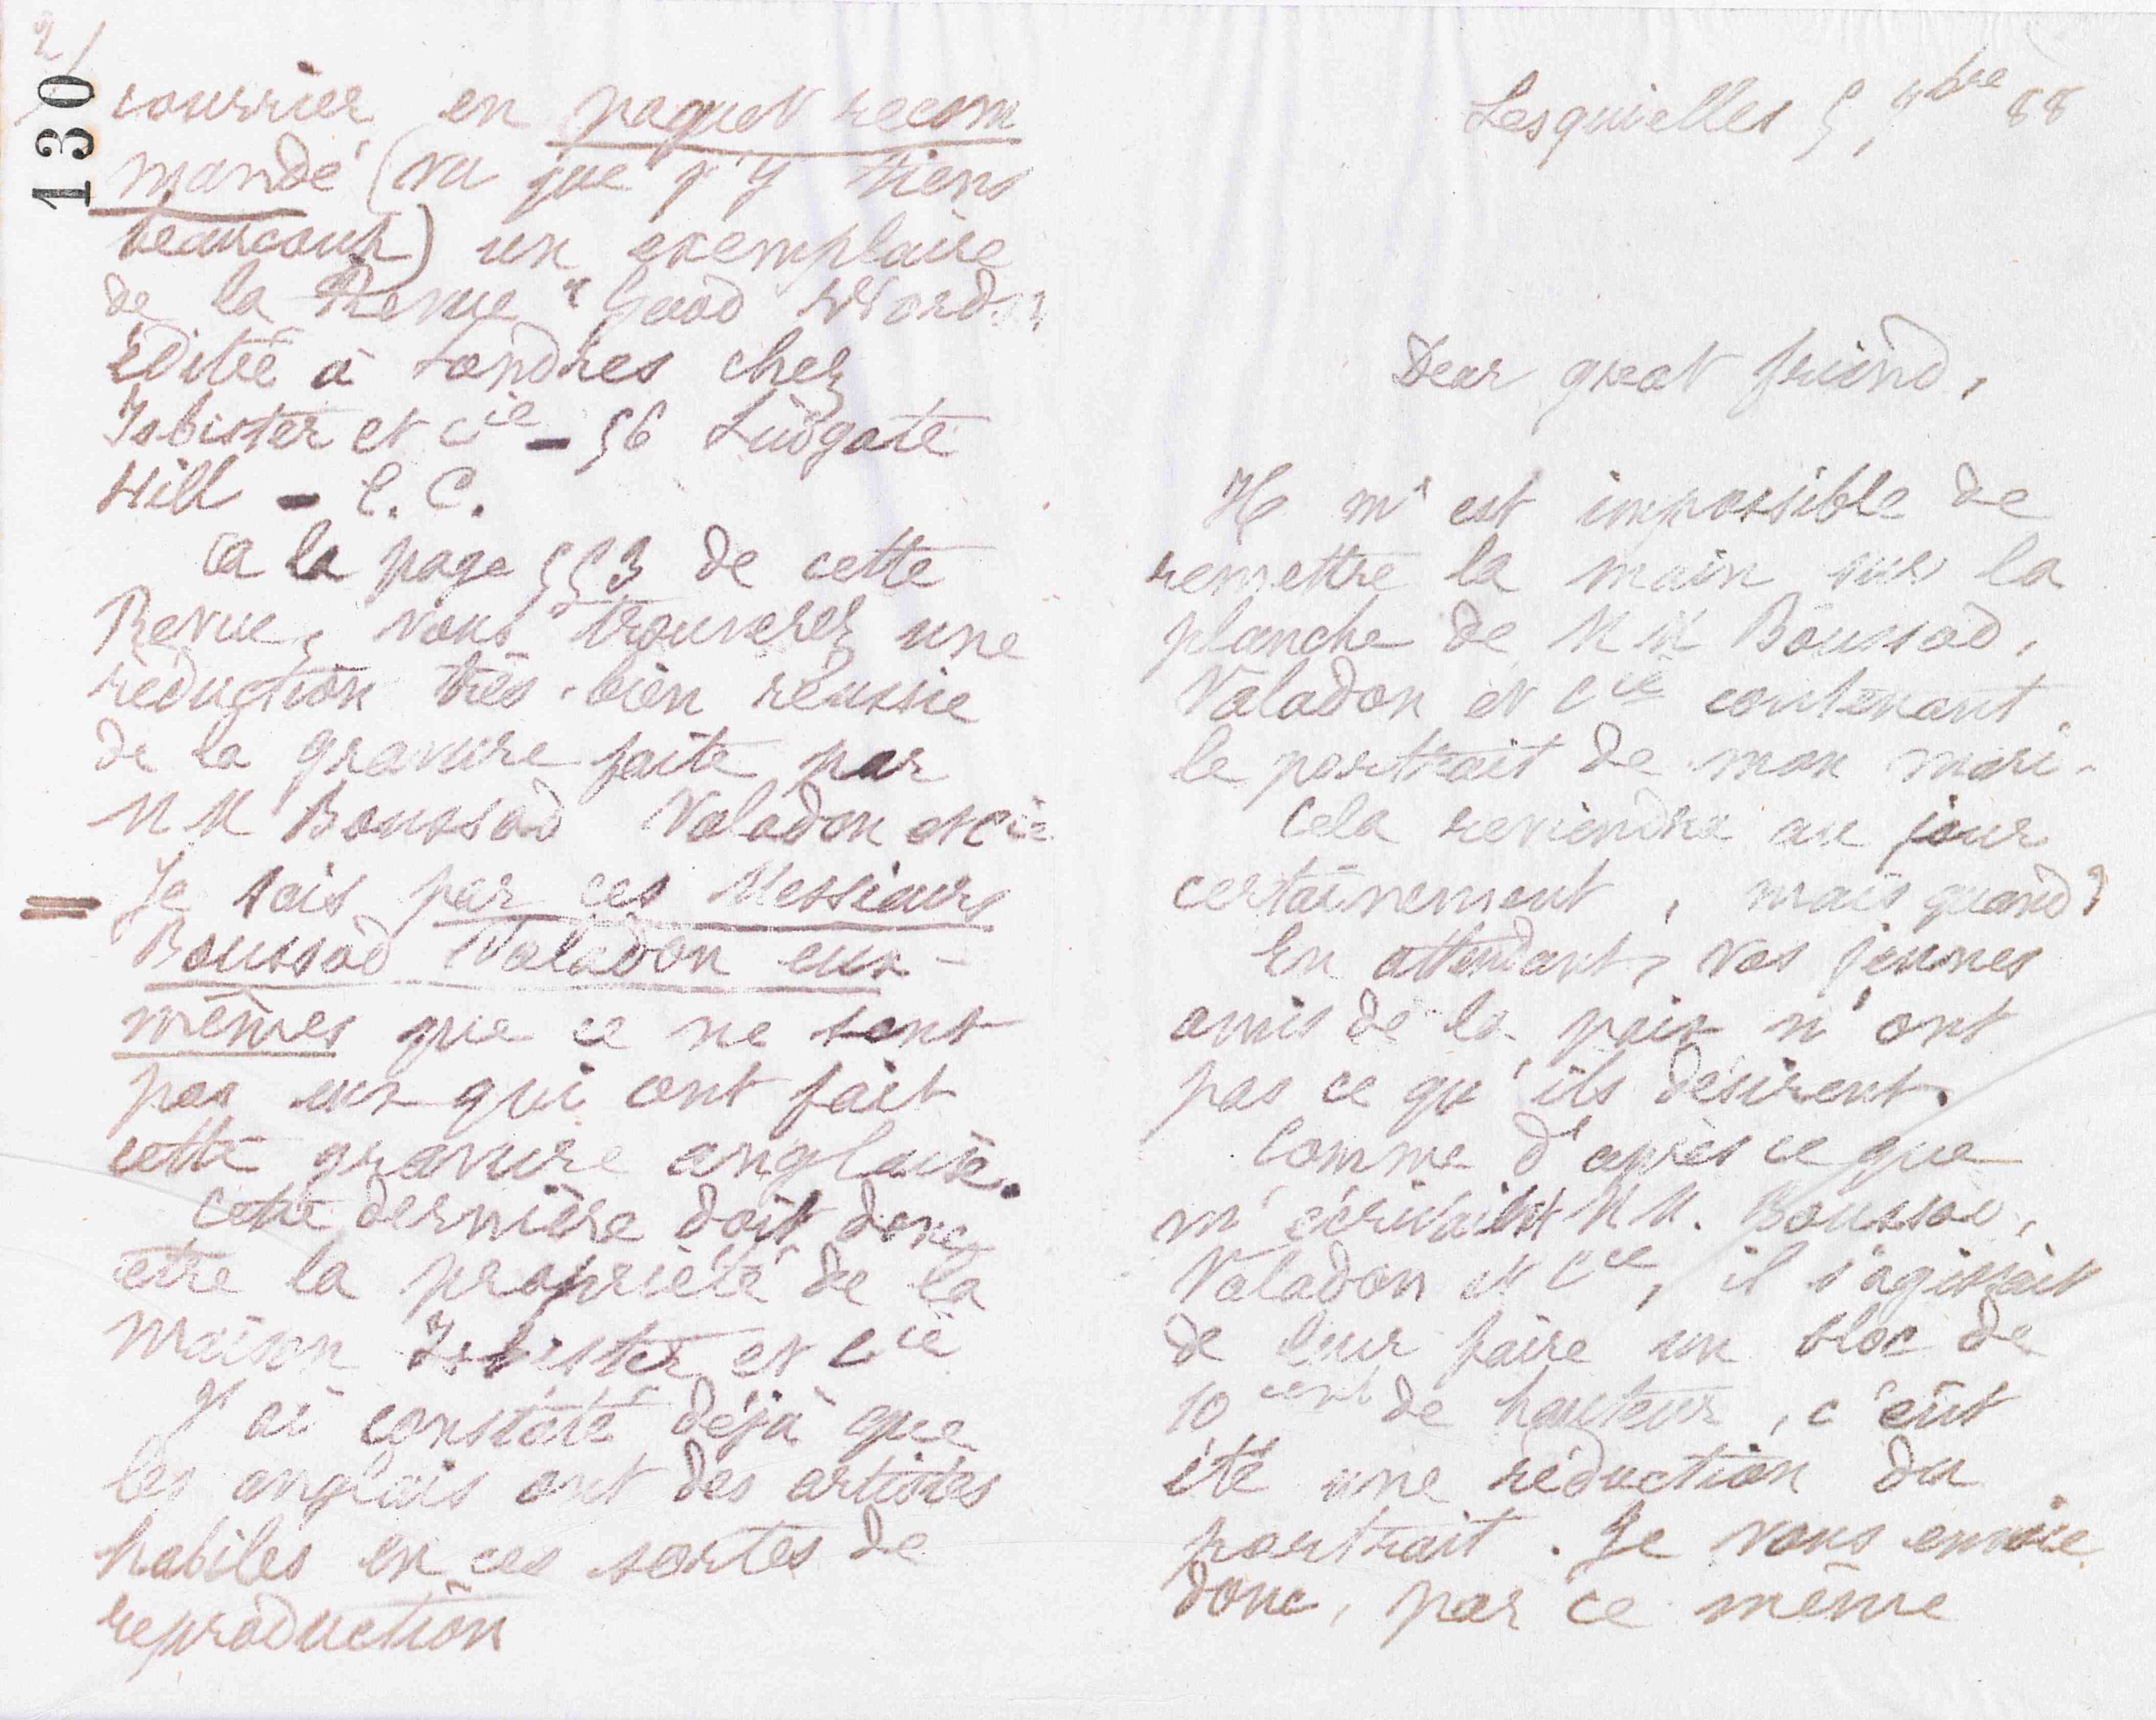 Lesquielles 5, 9bre 88
Dear great friend,
Il m'est impossible de
remettre la main sur la
planche de MM Boussod,
Valadon et Cie contenant
le portrait de mon mari.
Cela reviendra au jour
certainement, mais quand?
En attendant, vos jeunes
amis de la paix n'ont
pas ce qu'ils désirent.
Comme d'après ce que
m'écrivaient MM. Boussod,
Valadon et Cie, il s'agissait
de leur faire un bloc de
10 cent de hauteur, c'eût
été une réduction du
portrait. Je vous envoie
donc, par ce même
2/
130
courrier en paquet recom
mandé (vu que j'y tiens
beaucoup) un exemplaire
de la Revue "Good Words"
éditée à Londres chez
Isbister et Cie - 56 Ludgate
Hill - E.C.
a la page 553 de cette
Revue, vous trouverez une
réduction très-bien réussie
de la gravure faite par
MM Boussod Valadon et Cie
Je sais par ces Messieurs
Boussod Valadon eux-
mêmes que ce ne sont
pas eux qui ont fait
cette gravure anglaise.
Cette dernière doit donc
etre la propriété de la
Maison Isbister et Cie
J'ai constaté déjà que
les anglais ont des artistes
habiles en ces sortes de
reproduction